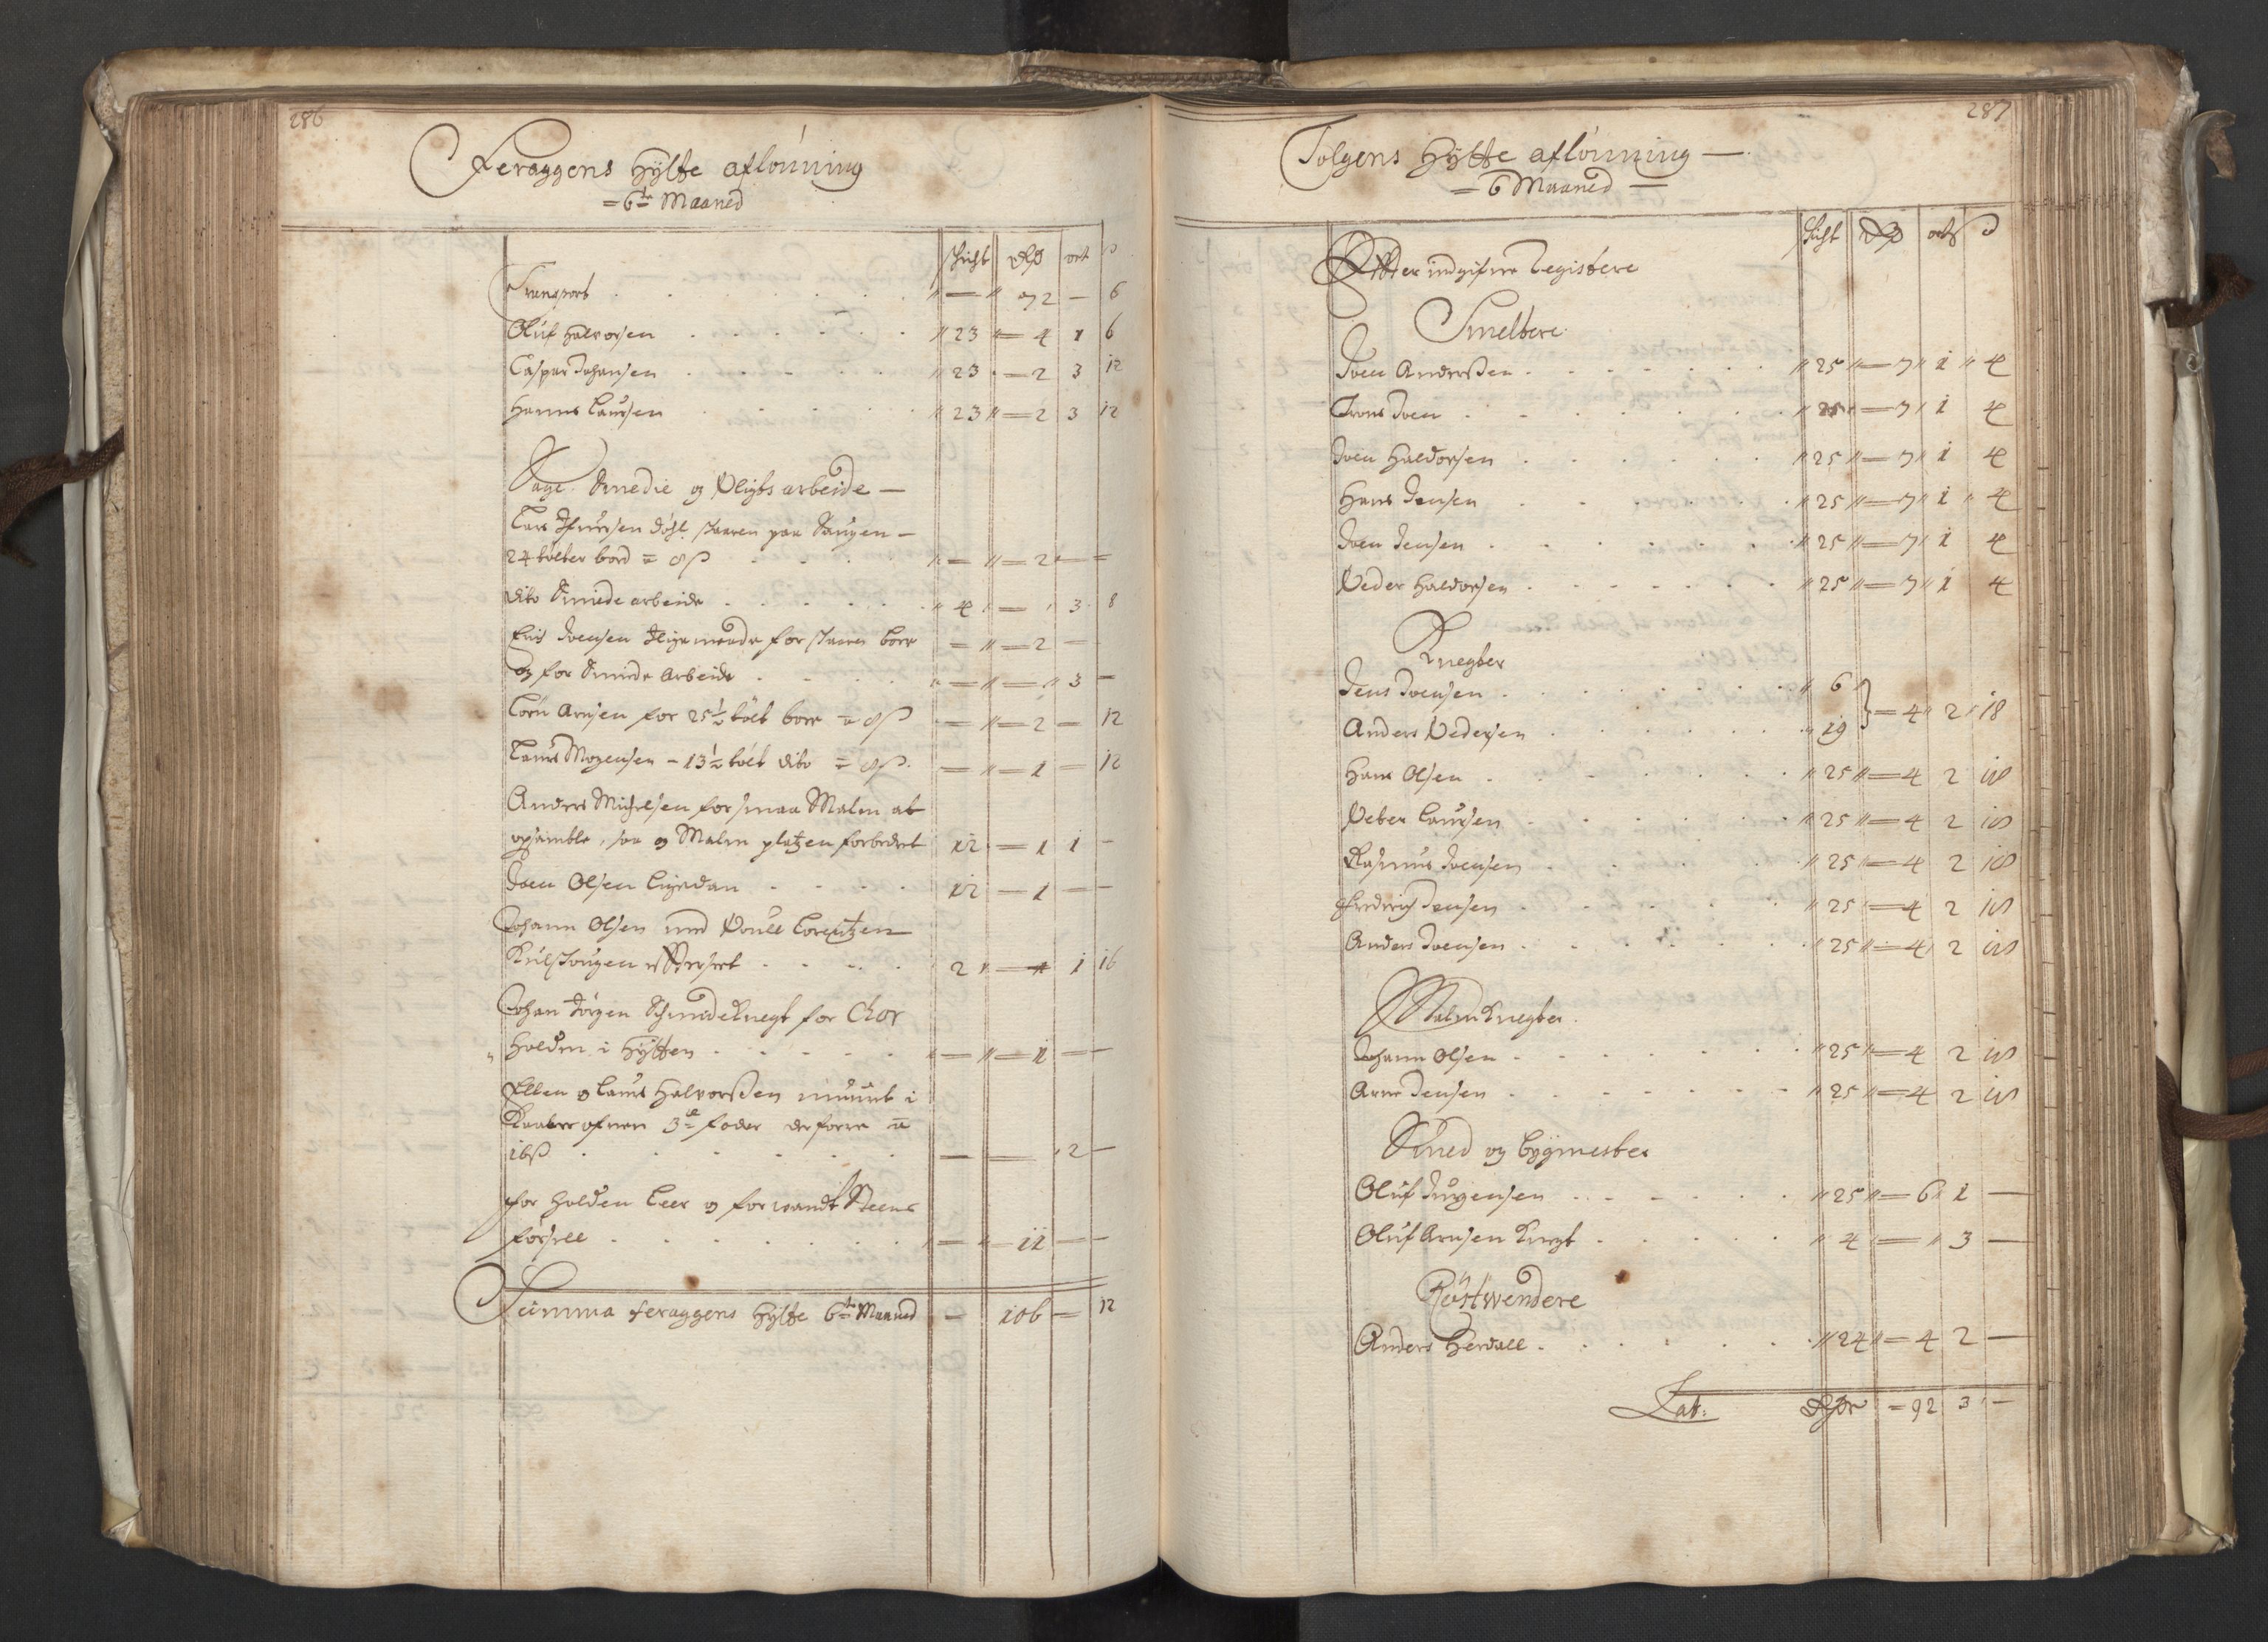 286
Feraggens Hÿtte aflönning
= 6te Maaned
schicht dlr ort ß
Transport . . . . . . . " — " 72 — 6
Oluf Halvorsen . . . . . . " 23 " = 4 1 6
Caspar Johansen . . . . . " 23 " = 2 3 12
Hanns Laursen . . . . . " 23 " = 2 3 12
Sage Smedie og Pligts arbeide —
Lars Jfuersen schaaren paa Saugen —
24 tolter bord a 8 ß . . . " — " = 2 — =
dito Smede arbeide . . . . . " 4 " — " 3 8
Erich Joensen for bore — " = 2 —
og for Smede Arbeide . . . . " — " — " 3 —
Arnsen for 25½ tolt bore a 8 ß — " = 2 — 12
Laurs Mogensen – 13½ tolt dito a 8 ß. — " = 1 — 12
Anders Michelsen for smaa Malm at
opsamble, saa og Malm platzen forbedret 12 — 1 1 —
Joen Olsen ligedan . . . . 12 — 1 — —
Johann Olsen med Pouel Lorentzen
. . . . . 2 " — 1 16
Johan Jörgen Schmideknegt for Chor
Holden i Hÿtten . . . . . " — " = 1 — —
Ellen og Laurs Halvorsen i
3de foder derforre a
16 ß . . . . . . — — 2 —
for Holden Leer og forwandt Steens
försell . . . . . . . " — " 11 — —
Summa feraggens Hÿtte 6te Maaned — 106 — 12
287
Tolgens Hÿtte aflönning —
= 6 Maaned —
schicht dlr ort ß
Efter indgifne Registere
Smeltere
Joen Andersen . . . . . . " 25 " = 7 " 1 " 4
Trons Joen . . . . . . " 25 " = 7 " 1 4
Joen Haldorsen . . . . . . " 25 " = 7 " 1 4
Hans Jensen . . . . . " 25 " = 7 " 1 " 4
Joen Jensen . . . . . . " 25 " = 7 " 1 4
Peder Haldorsen . . . . . . " 25 " = 7 " 1 4
Knegter
Jens Joensen . . . . . . . " 6 "
Anders Pedersen . . . . . . " 19 } = 4 " 2 " 18
Hans Olsen . . . . . . " 25 " = 4 2 18
Peter Laursen . . . . . . " 25 " = 4 2 18
Rasmus Joensen . . . . . . " 25 " = 4 2 18
Frederich Jensen . . . . . . " 25 " = 4 2 18
Anders Joensen . . . . . . " 25 " = 4 2 18
Malm Knegter
Johann Olsen . . . . . . " 25 " = 4 2 18
Arne Jensen . . . . . . " 25 " = 4 2 18
Smed og bÿgmester
Oluf Jurgensen . . . . . . " 25 " = 6 " 1 —
Oluf Arnsen Knegt . . . . . " 4 " — " 3 —
Röstwendere
Anders Herdall . . . . . . " 24 " = 4 2 —
Lat: dlr = 92 3 —